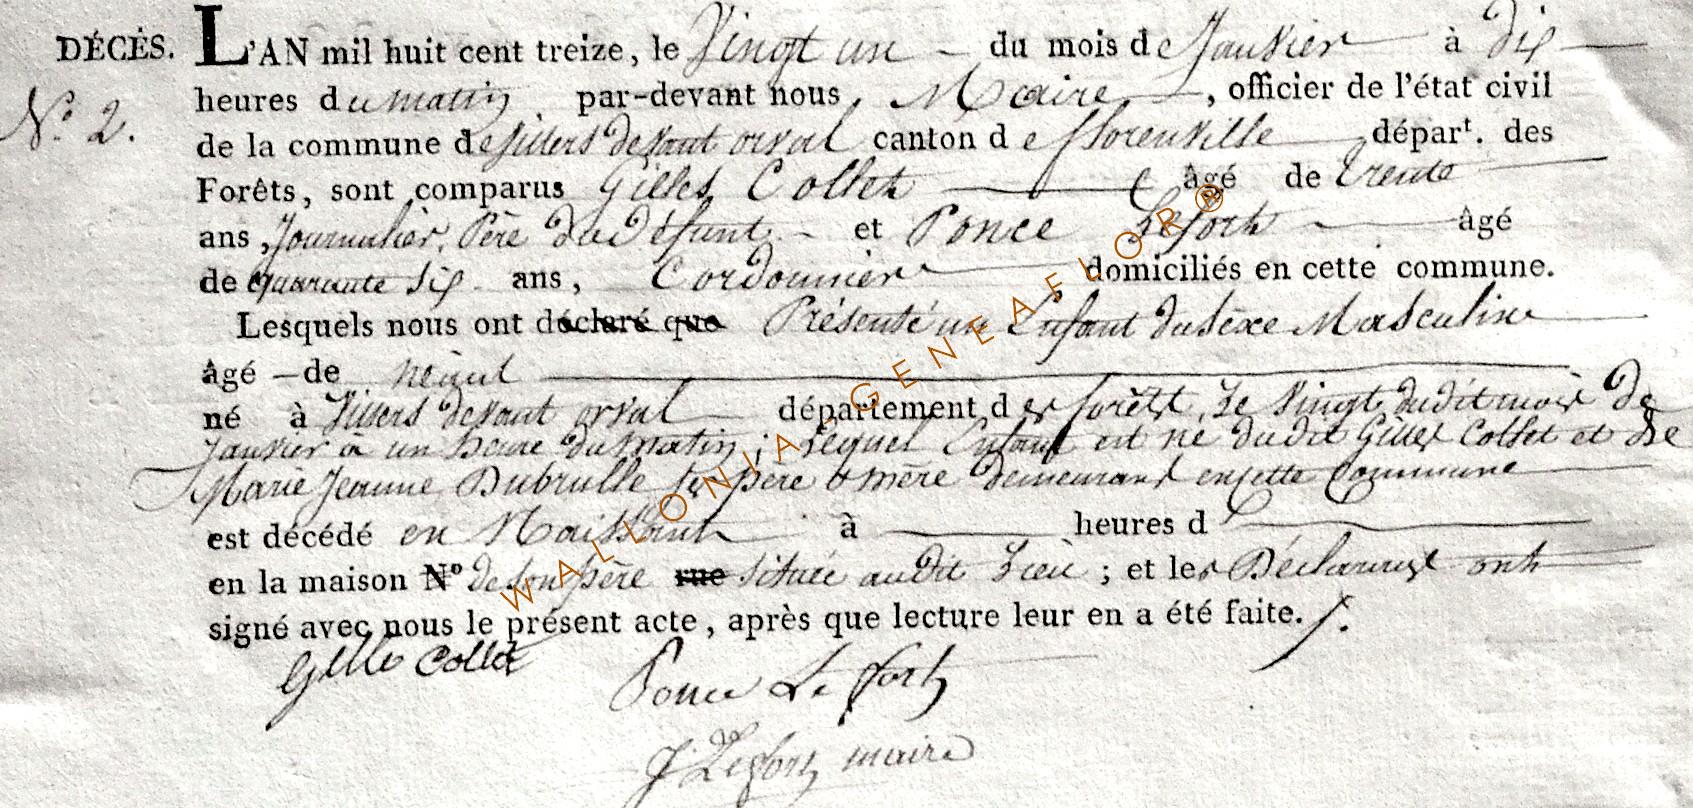 DÉCÈS. L'AN mil huit cent treize, le Vingt un du mois de Janvier à dix
N.° 2. heures du matin par-devant nous, Maire, officier de l'état civil
de la commune de Villers devant orval canton de florenville dépar.t des
Forêts, sont comparus Gilles Collet âgé de trente
ans, Journalier, Père du défunt et Ponce Lefort âgé
de quarante six ans, Cordonnier domiciliés en cette commune.
Lesquels nous ont déclaré que Présenté un Enfant du sexe Masculin
âgé de
né à Villers devant orval département des forêts, Le Vingt dudit mois De
Janvier à un heure du matin ; Lequel Enfant est né dudit Gilles Collet et De
Marie Jeanne Dubrulle ses père & mère demeurant en cette Commune
est décédé en Naissant à heures d
en la maison N° de son père rue située audit Lieu ; et les Déclarants ont
signé avec nous le présent acte, après que lecture leur en a été faite.
Gille Collet Ponce Le fort
J Lefort maire
WALLONIA-GENEAFLOR®